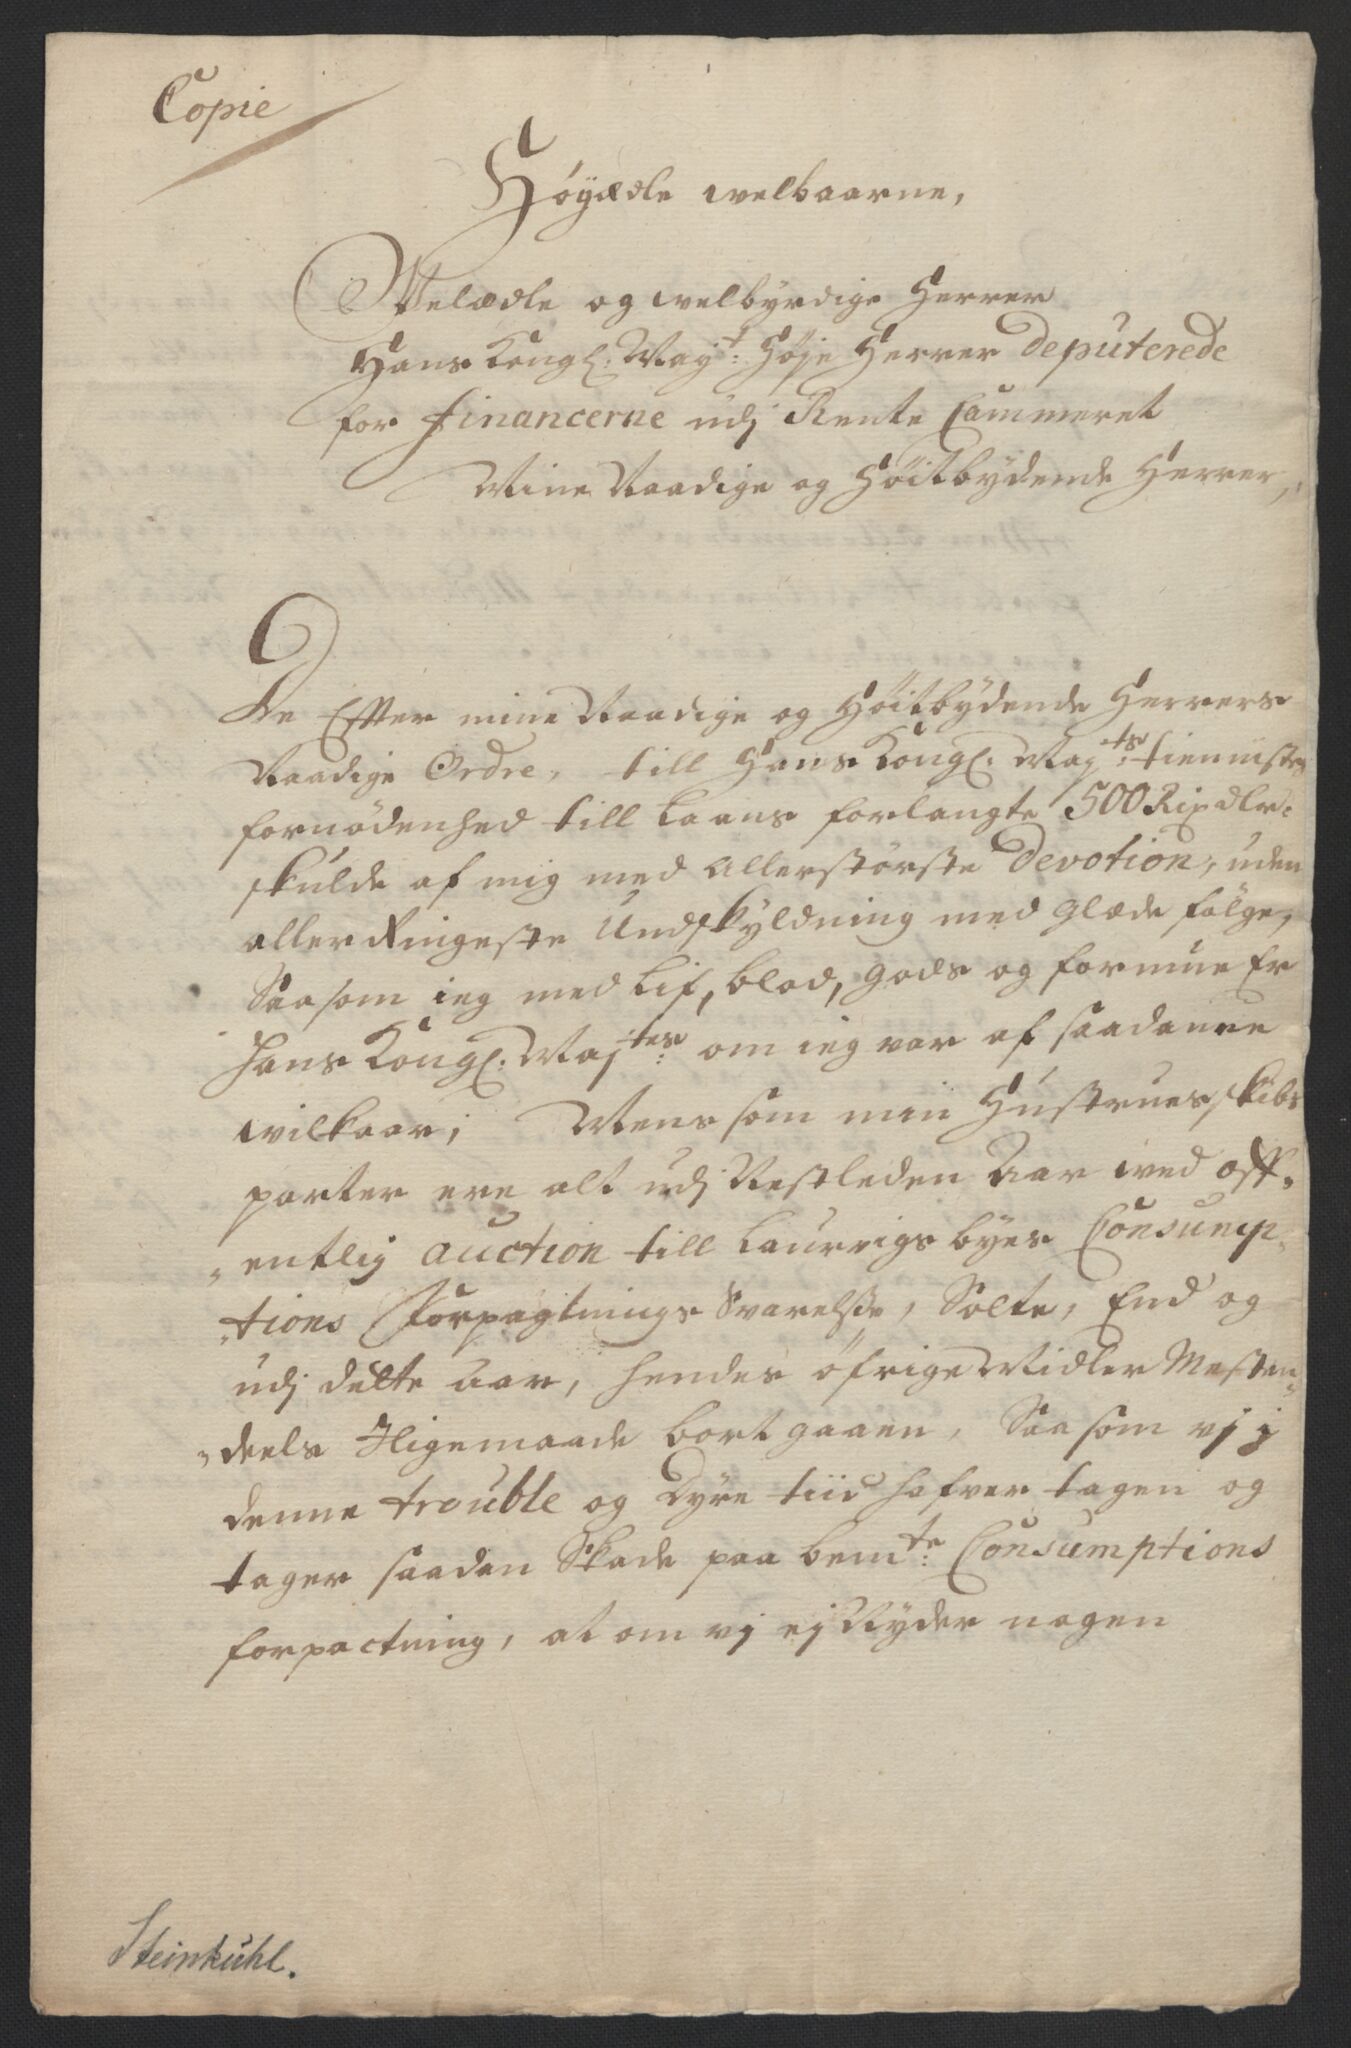 Copie
Höyædle welbaarne,
Welædle og welbyrdige Herrer
Hans Kongl: Mayt: Höje Herrer Deputerede
for financerne udj Rente Cammeret
Mine Naadige og Höitbydende Herrer,
De Efter mine Naadige og Höitbydende Herrers
Naadige Ordre, till Hans Kongl: Mayts: tiennistes
fornödenhed till Laans forlangte 500 Rixdlr:
skulde af mig med allerstörste Devotion, uden
aller Ringeste Undskyldning med glæde fölge,
Saasom ieg med Lif, blod, gods og formue Er
Hans Kongl: Majtes: om ieg var af saadanne
wilkaar; Mens som min Hustrues skibs
parter ere alt udj Nestleden Aar wed off,
,entlig auction till Laurvigs byes Consump,
,tions Forpagtnings Svarelsse, Solte, End og
udj dette aar, hendes öfrige Midler Mesten,
,deels Iligemaade bort gaaen, Saasom vj j
denne trouble og Dyre tiid hafver tagen og
tager saadan Skade paa bemte: Consumptions
forpactning, at om vj ej Nyder nogen
Steinkühl.